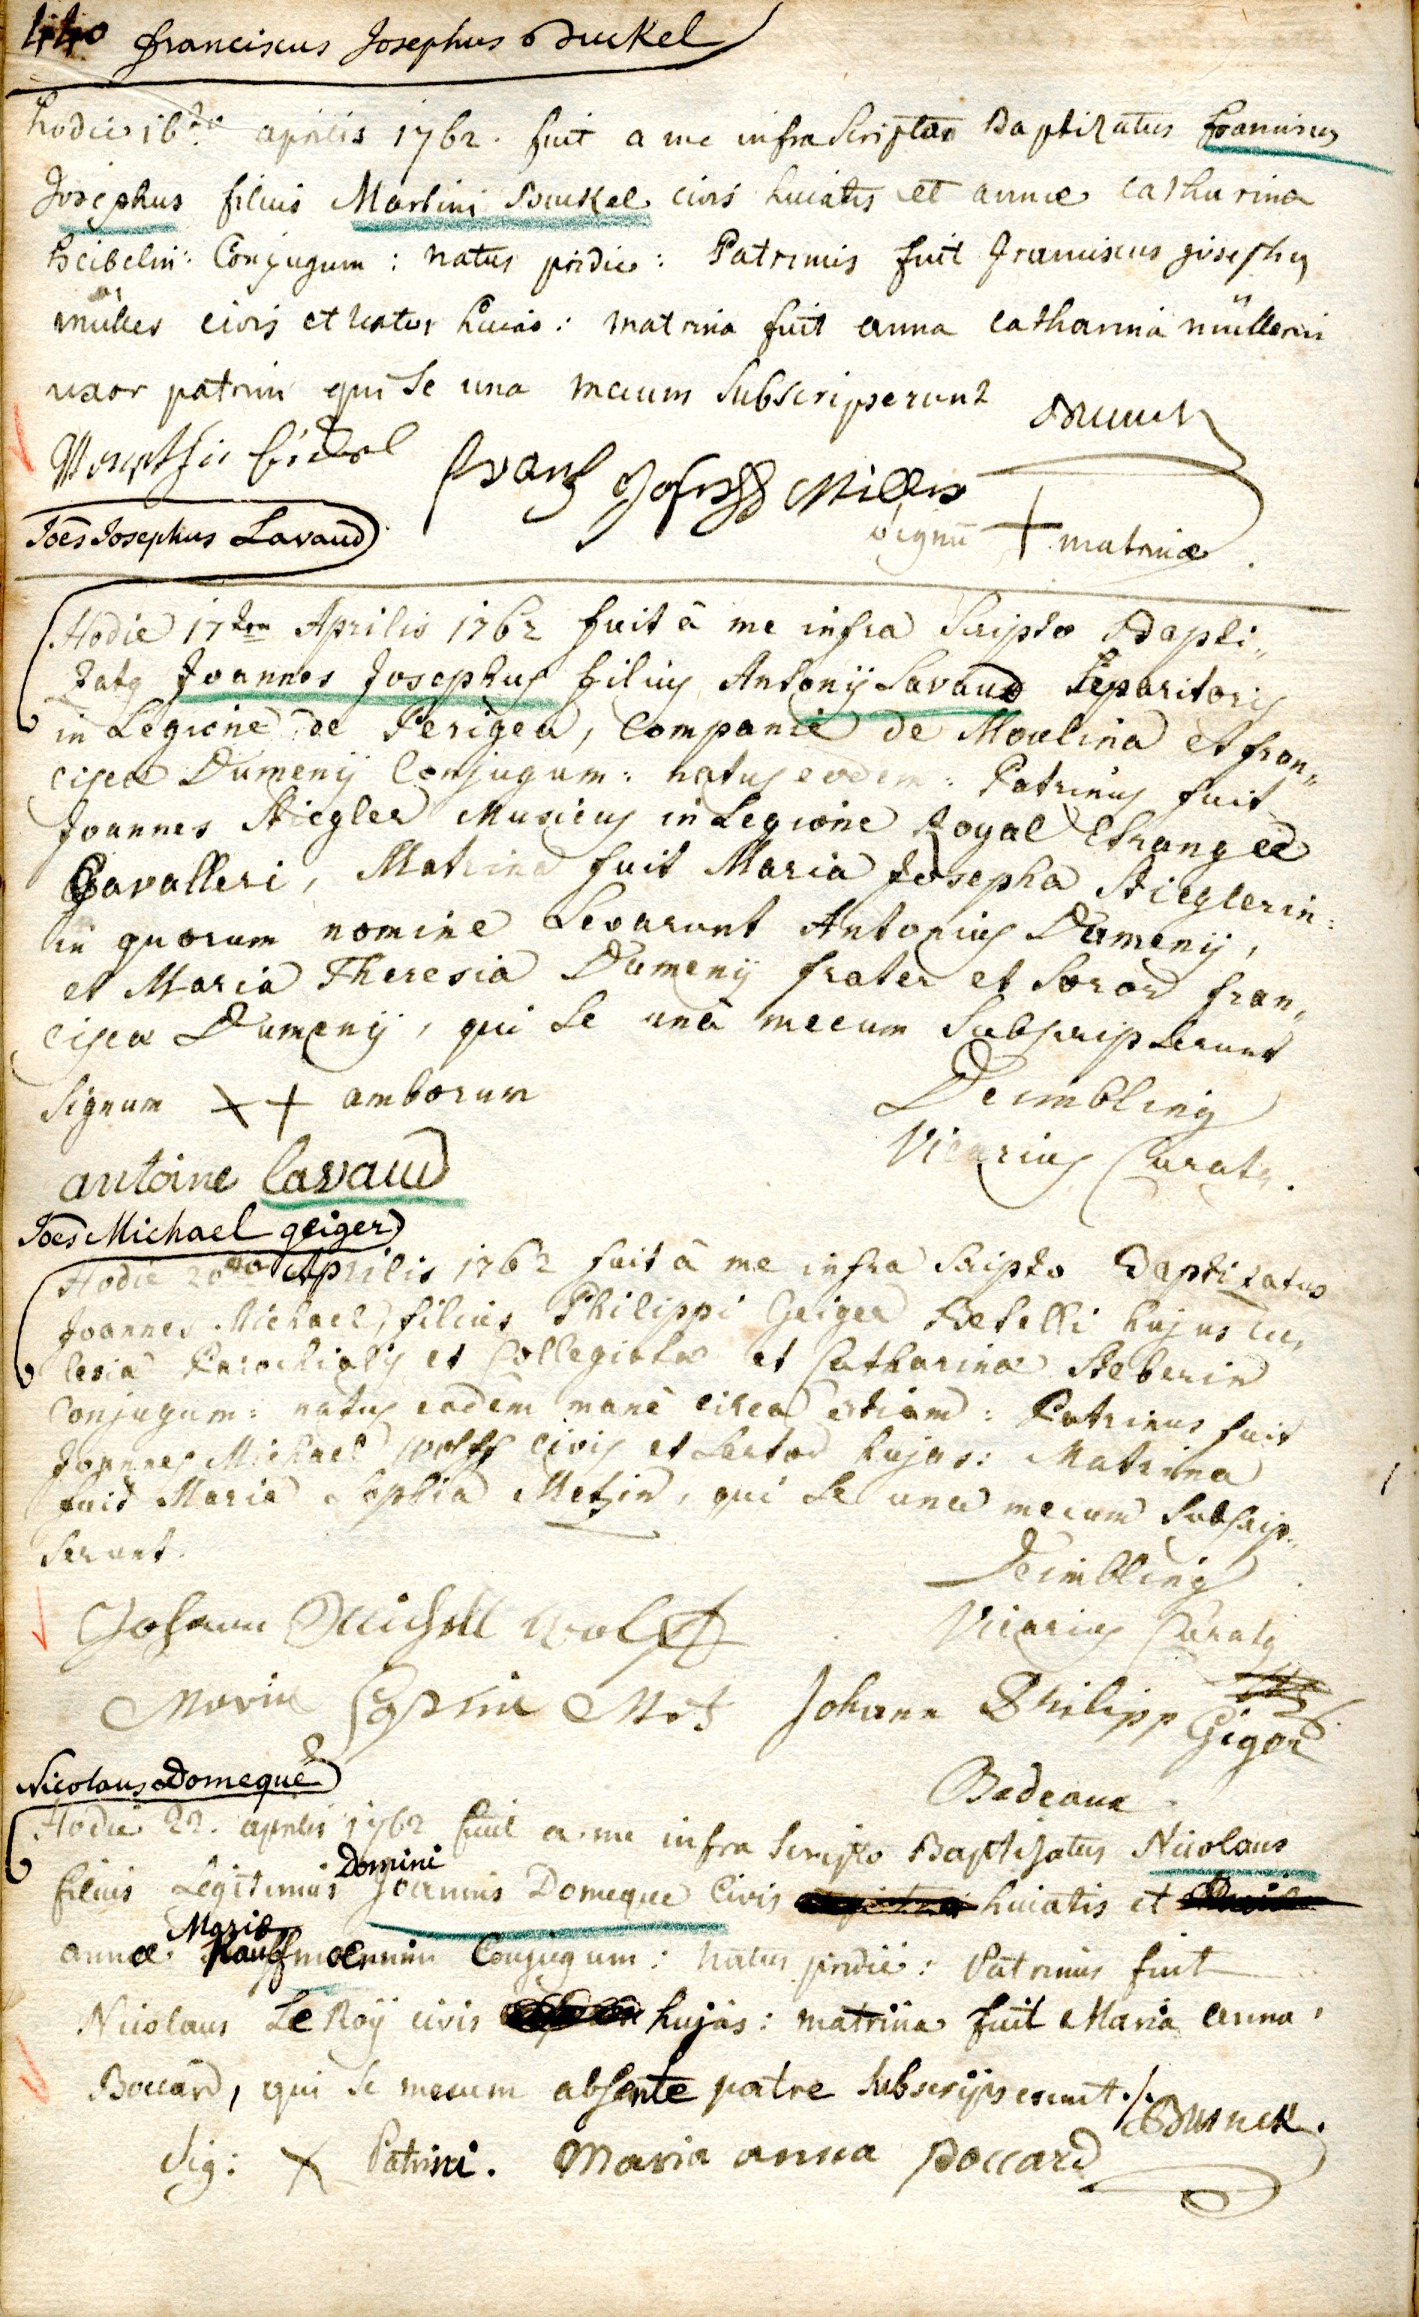 440 franciscus Josephus Buckel
hodie 16ta aprilis 1762. fuit a me infra Scripto Baptizatus franciscus
Josephus filius Martini Buckel civis huiatis et annæ catharina
heibelin: Conjugum: natus pridie: Patrinus fuit franciscus josephus
müller civis et huias: matrina fuit anna catharina müllerin
uxor patrini qui se una mecum subscripserunt
Franz Joseph Miller
signū + matrinæ
Joēs Josephus Lavaud
Hodie 17ma Aprilis 1762 fuit â me infra Scripto Bapti„
zatus Joannes Josephus filius Antonij Lavaud Separitoris
in Legione de Perigea, Companie de Moulina et fran„
ciscæ Dumenij Conjugum: natus eodem: Patrinus fuit
Joannes Stiegler Musicus in Legione Royal Etranger
Cavalleri, Matrina fuit Maria Josepha Stieglerin:
in quorum nomine Levarunt Antonius Dumenij,
et Maria Theresia Dumenij frater et Soror fran„
ciscæ Dumenij, qui se unâ mecum Subscripserunt
Signum + + amborum
Deimbling
Vicarius Curatus.
antoine lavaud
Joēs Michael geiger
Hodie 20ma Aprilis 1762 fuit â me infra Scripto Baptizatus
Joannes Michael, filius Philippi Geiger Bedelli hujus Ecc„
lesiæ Parochialis et Collegiatæ et Catharinæ Steberin
Conjugum: natus eadem manê circa: Patrinus fuit
Joannes Michael Wolff civis et Sartor hujas: Matrina
fuit Maria Sophia Metzin, qui se una mecum Subscrip„
serunt.
Deimbling
Vicarius Curatus
Johann Michell Wolff
Maria Sophia Metz Johann Philipp Giger
Bedeaux
Nicolaus Domeque
Hodie 22. aprilis 1762 fuit a me infra Scripto Baptisatus Nicolaus
filius Legitimus Domini Joannis Domeque Civis huiatis et
annæ Mariæ Kauffmænnin Conjugum: natus pridie: Patrinus fuit
Nicolaus Le Roy civis hujas: matrina fuit Maria anna
Boccard, qui se mecum absente patre subscripserunt./.
Sig: X Patrini. Maria anna Boccard